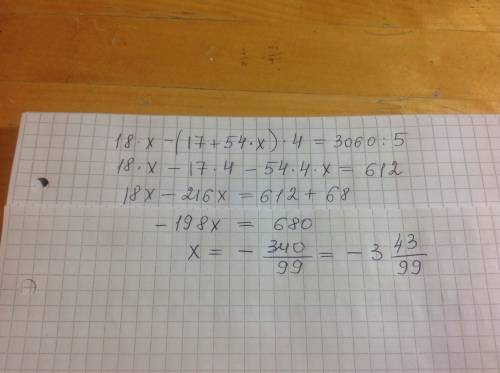 18·x-(17+54·x)·4=3060:5
18·x-17·4-54·4·x=612
18x-216x=612+68
-198x=680
x=-340/99=-3 43/99